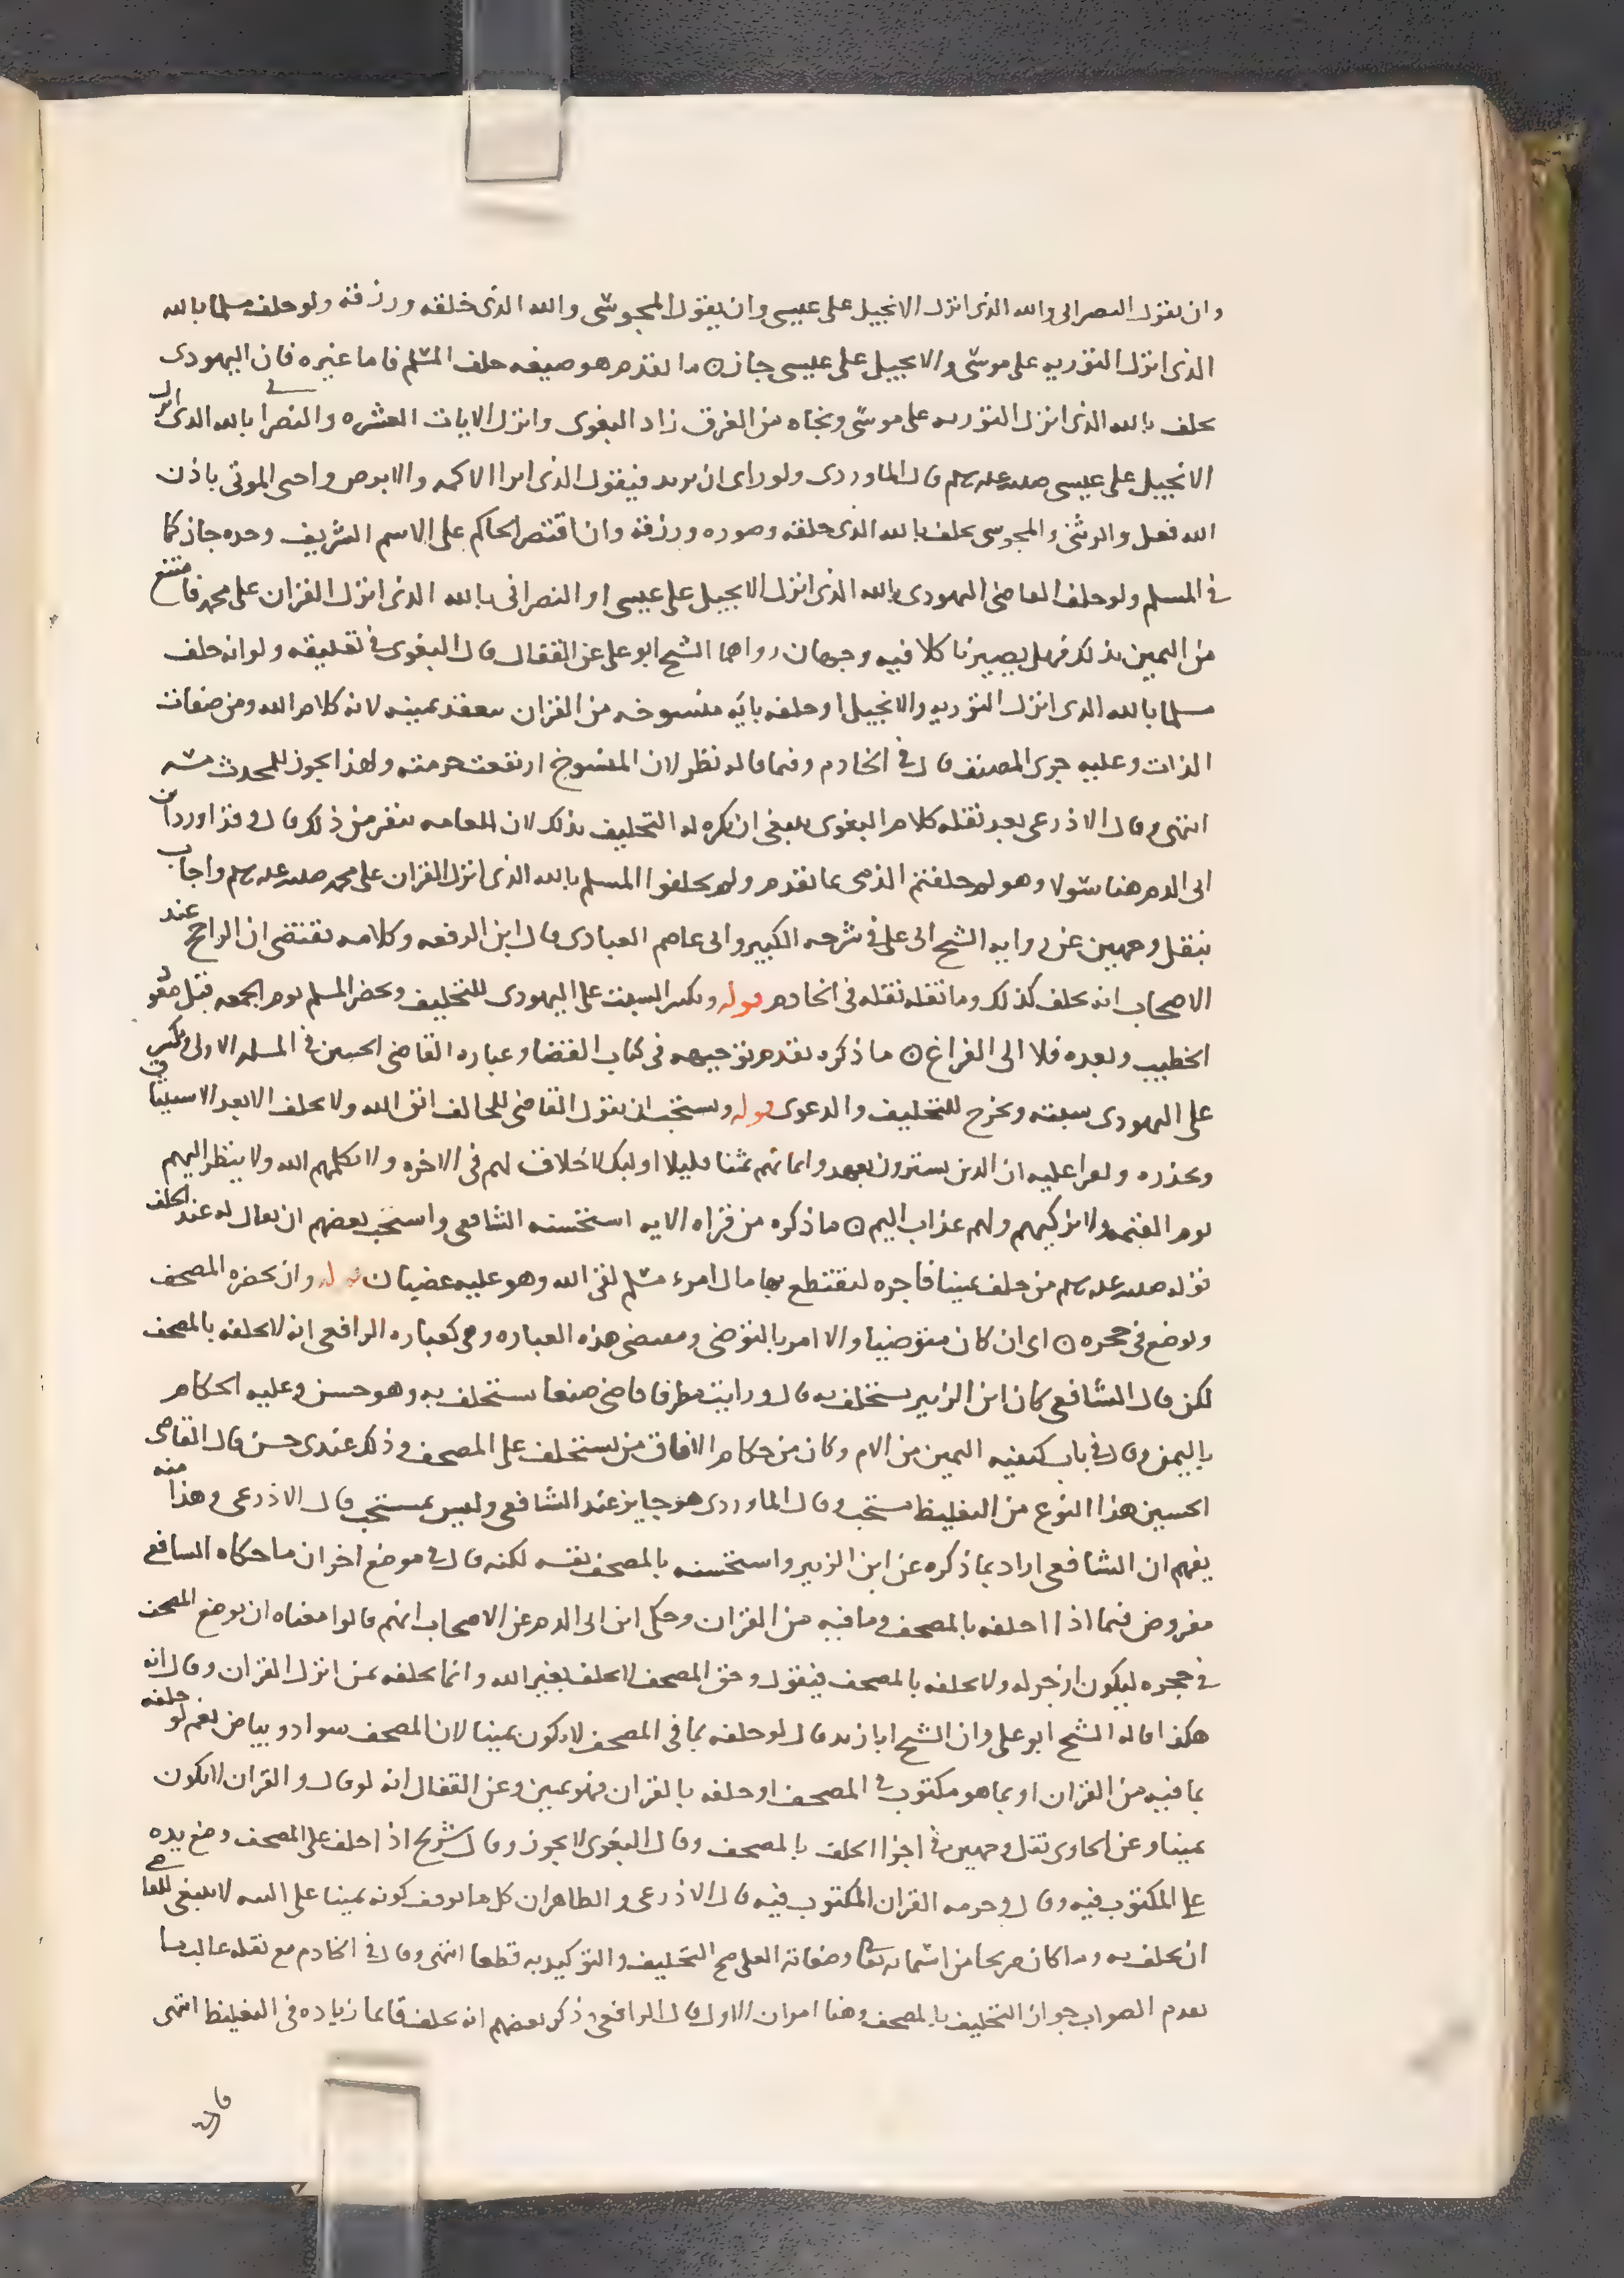 وان يقول النصراني والله الذي انزل الانجيل على عيسى وان يقول المجوسي والله الذي خلقه ورزقه ولو حلف مسلما بالله
الذي انزل التوريه على موسى والانجيل على عيسى جاز ٥ ما تقدم هو صيغه حلف المسلم فاما غيره فان اليهودي
يحلف بالله الذي انزل التوريه على موسى ونجاه من الغرق زاد البغوي وانزل الايات العشره والنصراني بالله الذي انزل
الانجيل على عيسى صلى الله عليه وسلم قال الماوردي ولو راى ان يزيد فيقول الذي ابرا الاكمه والابرص واحيى الموتى باذن
الله فعل والوثني والمجوسي يحلف بالله الذي خلقه وصوره ورزقه وان اقتصر الحاكم على الاسم الشريف وحده جاز كما
في المسلم ولو حلف القاضي اليهودي بالله الذي انزل الانجيل على عيسى او النصراني بالله الذي انزل القران على محمد فامتنع
من اليمين بذلك فهل يصير ناكلا فيه وجهان رواهما الشيخ ابو علي عن القفال قال البغوي في تعليقه ولو انه حلف
مسلما بالله الذي انزل التوريه والانجيل او حلفه بايه منسوخه من القران ينعقد يمينه لانه كلام الله ومن صفات
الذات وعليه جرى المصنف قال في الخادم وفيما قاله نظر لان المنسوخ ارتفعت حرمته ولهذا يجوز للمحدث مسه
انتهى وقال الاذرعي بعد نقله كلام البغوي ينبغي ان يكره له التحليف بذلك لان العامه تنفر من ذلك قال وقد اورد ابن
ابي الدم هنا سولا وهو لم حلفتم الذمي بما تقدم ولم يحلفوا المسلم بالله الذي انزل القران على محمد صلى الله عليه وسلم واجاب
بنقل وجهين عن روايه الشيخ ابي علي في شرحه الكبير وابي عاصم العبادي قال ابن الرفعه وكلامه يقتضي ان الراجح عند
الاصحاب انه يحلف كذلك وما نقله نقله في الخادم قوله ويكسر السبت على اليهودي للتحليف ويحضر المسلم يوم الجمعه قبل صعود
الخطيب وبعده فلا الى الفراغ ٥ ما ذكره تقدم توجيهه في كتاب القضا وعباره القاضي الحسين في المسله الاولى ويكسر
على اليهودي سبته ويخرج للتحليف والدعوى قوله ويستحب ان يقول القاضي للحالف اتق الله ولا يحلف الا بعد الاستيثاق
ويحذره ويقرا عليه ان الذين يشترون بعهد وايمانهم ثمنا قليلا اوليك لا خلاق لهم في الاخره ولا يكلمهم الله ولا ينظر اليهم
يوم القيمه ولا يزكيهم ولهم عذاب اليم ٥ ما ذكره من قراه الايه استحسنه الشافعي واستحب بعضهم ان يقال له عند الحلف
قوله صلى الله عليه وسلم من حلف يمينا فاجره ليقتطع بها مال امرء مسلم لقي الله وهو عليه غضبان قوله وان يحضره المصحف
ويوضع في حجره ٥ اي ان كان متوضيا والا امر بالتوضي ومقتضى هذه العباره وهي كعباره الرافعي انه لا يحلفه بالمصحف
لكن قال الشافعي كان ابن الزبير يستحلف به قال ورايت مطرفا قاضي صنعا يستحلف به وهو حسن وعليه الحكام
باليمن وقال في باب كيفيه اليمين من الام وكان من حكام الافاق من يستحلف على المصحف وذلك عندي حسن قال القاضي
الحسين هذا النوع من التغليظ مستحب وقال الماوردي هو جايز عند الشافعي وليس بمستحب قال الاذرعي وهذا منه
يفهم ان الشافعي اراد بما ذكره عن ابن الزبير واستحسنه بالمصحف نفسه لكنه قال في موضع اخر ان ما حكاه الشافعي
مفروض فيما اذا احلفه بالمصحف وما فيه من القران وحكى ابن ابي الدم عن الاصحاب انهم قالوا معناه ان يوضع المصحف
في حجره ليكون ازجر له ولا يحلفه بالمصحف فيقول وحق المصحف لا يحلف بغير الله وانما يحلفه بمن انزل القران وقال انه
هكذا قاله الشيخ ابو علي وان الشيخ ابا زيد قال لو حلفه بما في المصحف لا يكون يمينا لان المصحف سواد وبياض نعم لو حلفه
بما فيه من القران او بما هو مكتوب في المصحف او حلفه بالقران فهو يمين وعن القفال انه لو قال والقران لا يكون
يمينا وعن الحاوي نقل وجهين في اجزا الحلف بالمصحف وقال البغوي لا يجوز وقال شريح اذا حلف على المصحف وضع يده
على المكتوب فيه وقال وحرمه القران المكتوب فيه قال الاذرعي والظاهر ان كل ما يوقف كونه يمينا على النيه لا ينبغي للقاضي
ان يحلف به وما كان صريحا من اسمائه تعالى وصفاته العلى صح التحليف والتوكيد به قطعا انتهى وقال في الخادم مع نقله غالب ما
تقدم الصواب جواز التحليف بالمصحف وهنا امران الاول قال الرافعي وذكر بعضهم انه يحلف قايما زياده في التغليظ انتهى
قال